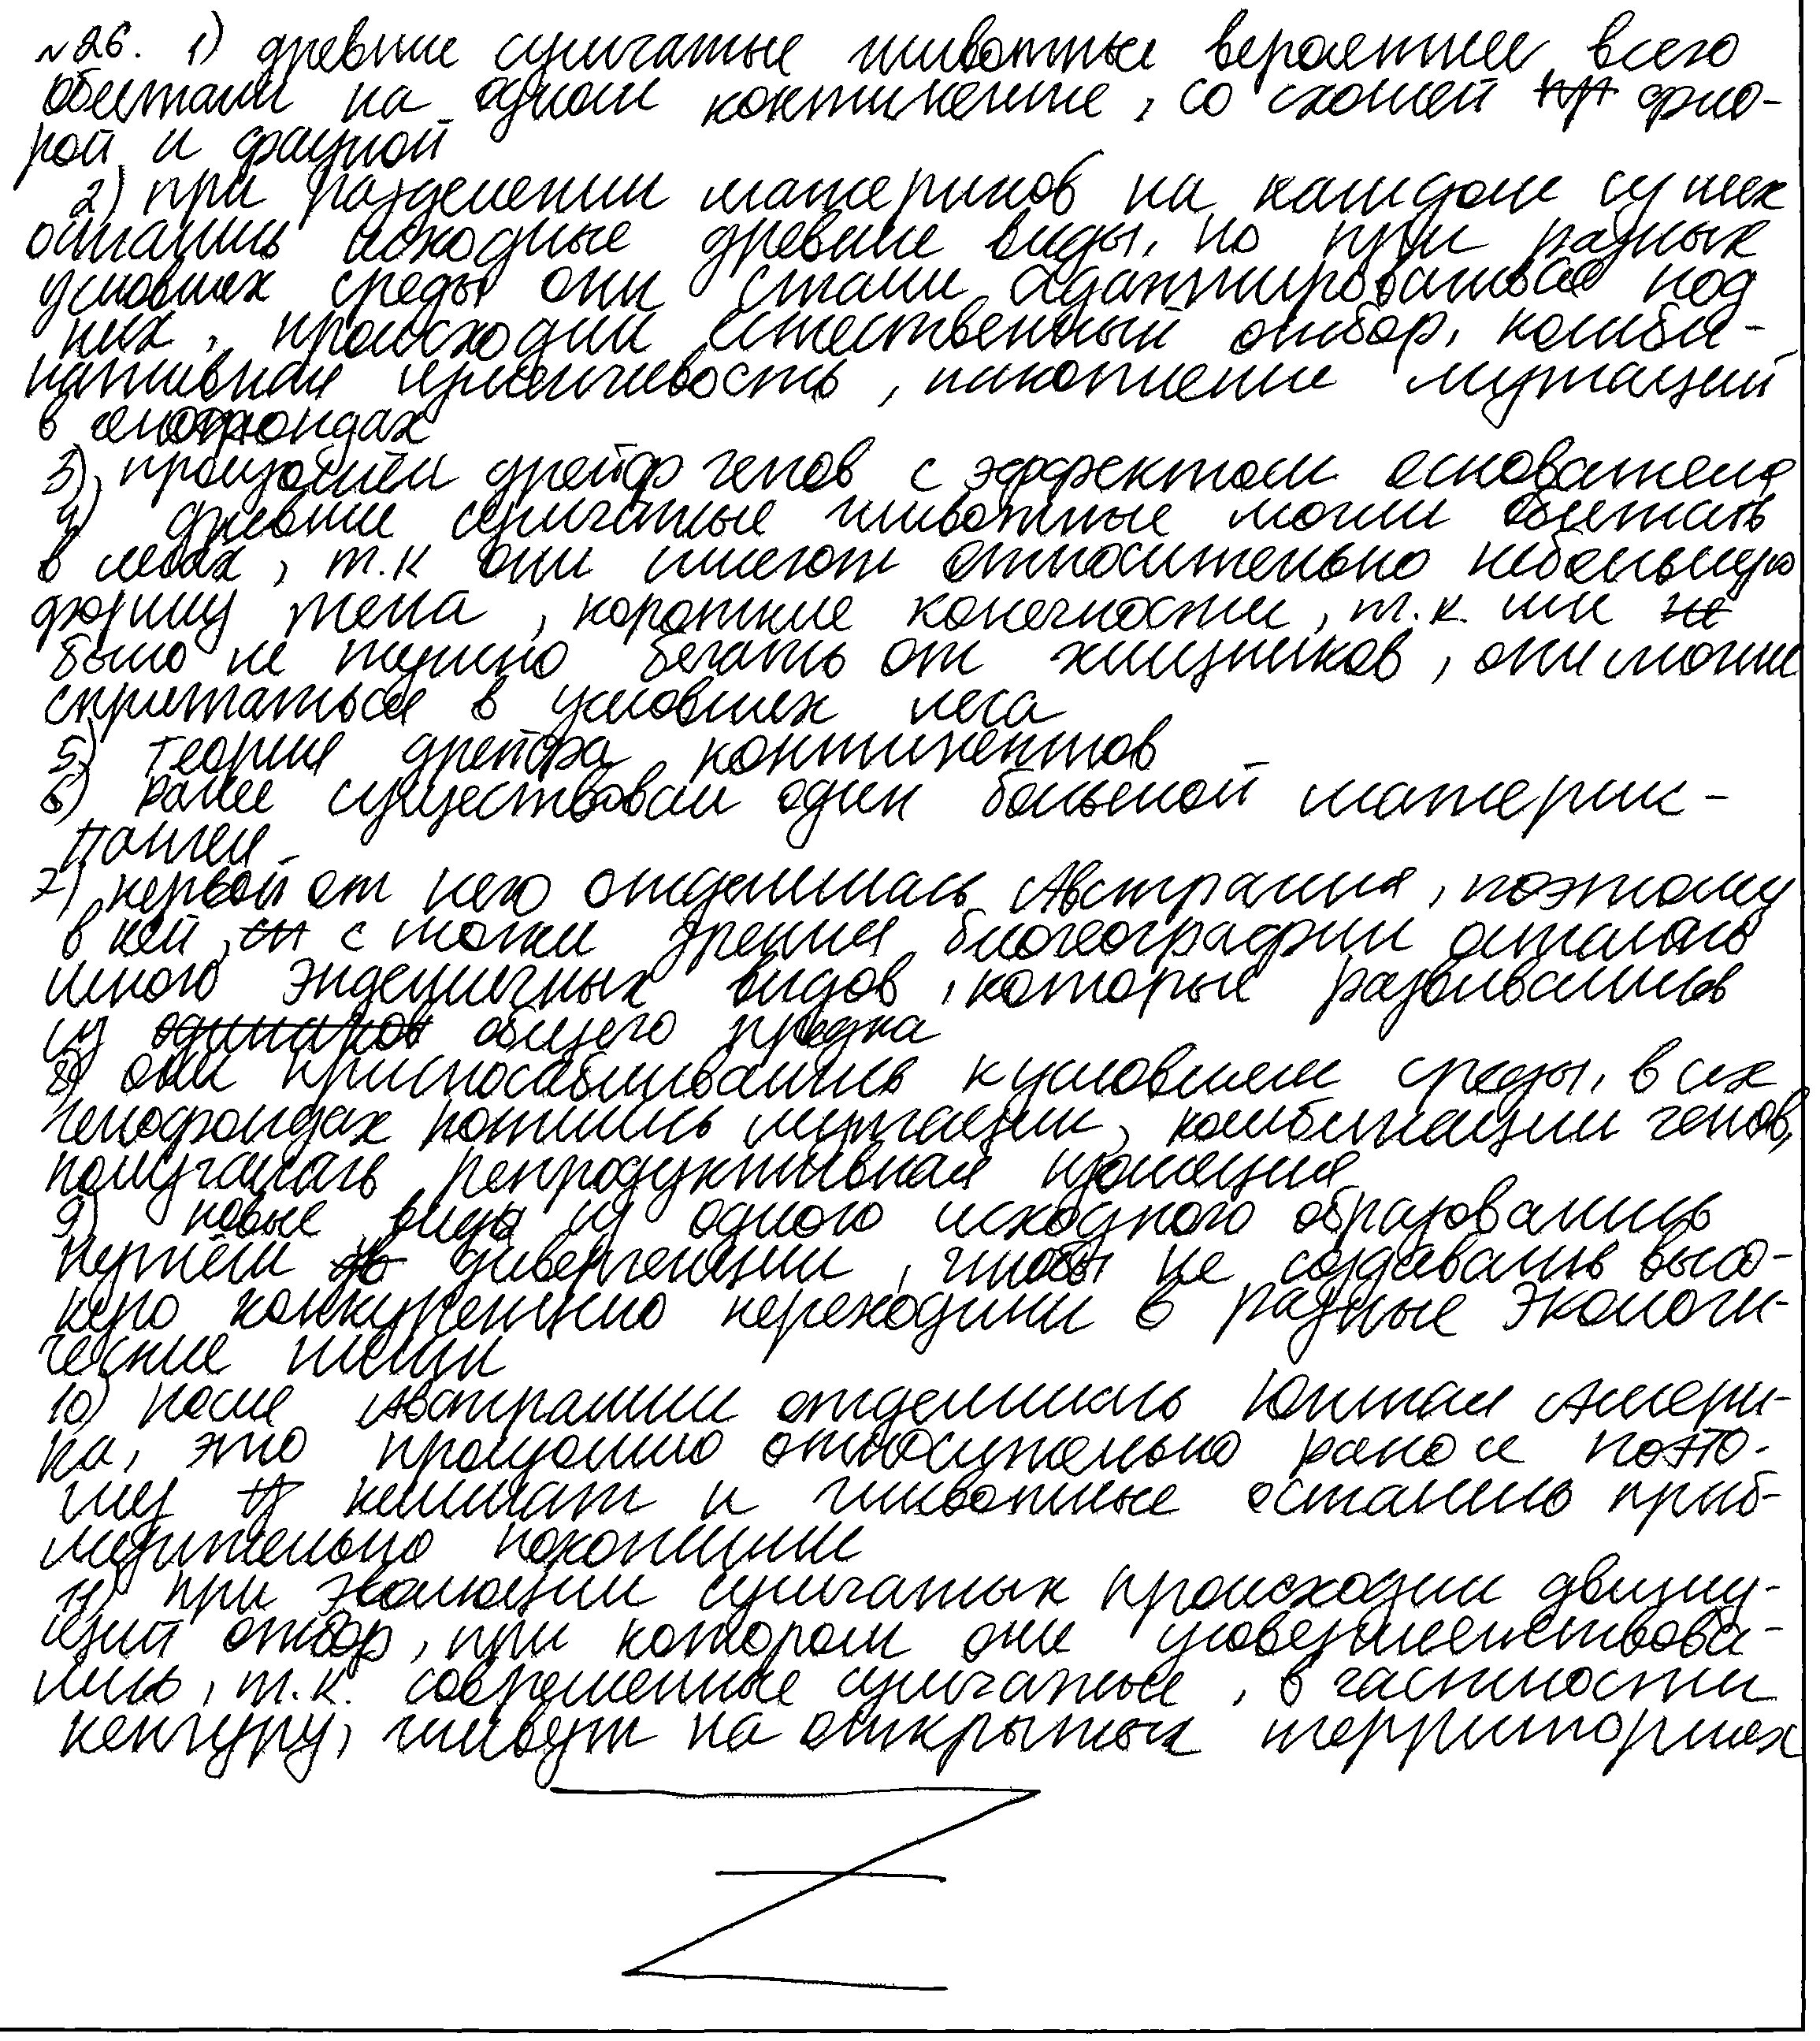 №26. 1) древние сумчатые животные вероятнее всего
обитали на одном континенте, со схожей фло-
рой и фауной
2) при разделении материков на каждом из них
остались исходные древние виды, но при разных
условиях среды они стали адаптироваться под
них, происходил естественный отбор, комби-
нативная изменчивость, накопление мутаций
в генофондах
3) произошёл дрейф генов с эффектом основателя
4) древние сумчатые животные могли обитать
в лесах, т.к они имеют относительно небольшую
форму тела, короткие конечности, т.к. им
было не нужно бегать от хищников, они могли
спрятаться в условиях леса
5) теория дрейфа континентов
6) ранее существовал один большой материк -
Пангея
7) первой от него отделилась Австралия, поэтому
в ней, с точки зрения биогеографии осталось
много эндемичных видов, которые развивались
из общего предка
8) они приспосабливались к условиям среды, в их
генофондах копились мутации, комбинации генов,
получилась репродуктивная изоляция
9) новые виды из одного исходного образовались
путём дивергенции, чтобы не создавать высо-
кую конкуренцию переходили в разные экологи-
ческие ниши
10) после Австралии отделилась Южная Амери-
ка, это произошло относительно рано и поэто-
му климат и животные остались приб-
лизительно похожими
11) при эволюции сумчатых происходил движу-
щий отбор, при котором они усовершенствова-
лись, т.к. современные сумчатые, в частности
кенгуру, живут на открытых территориях